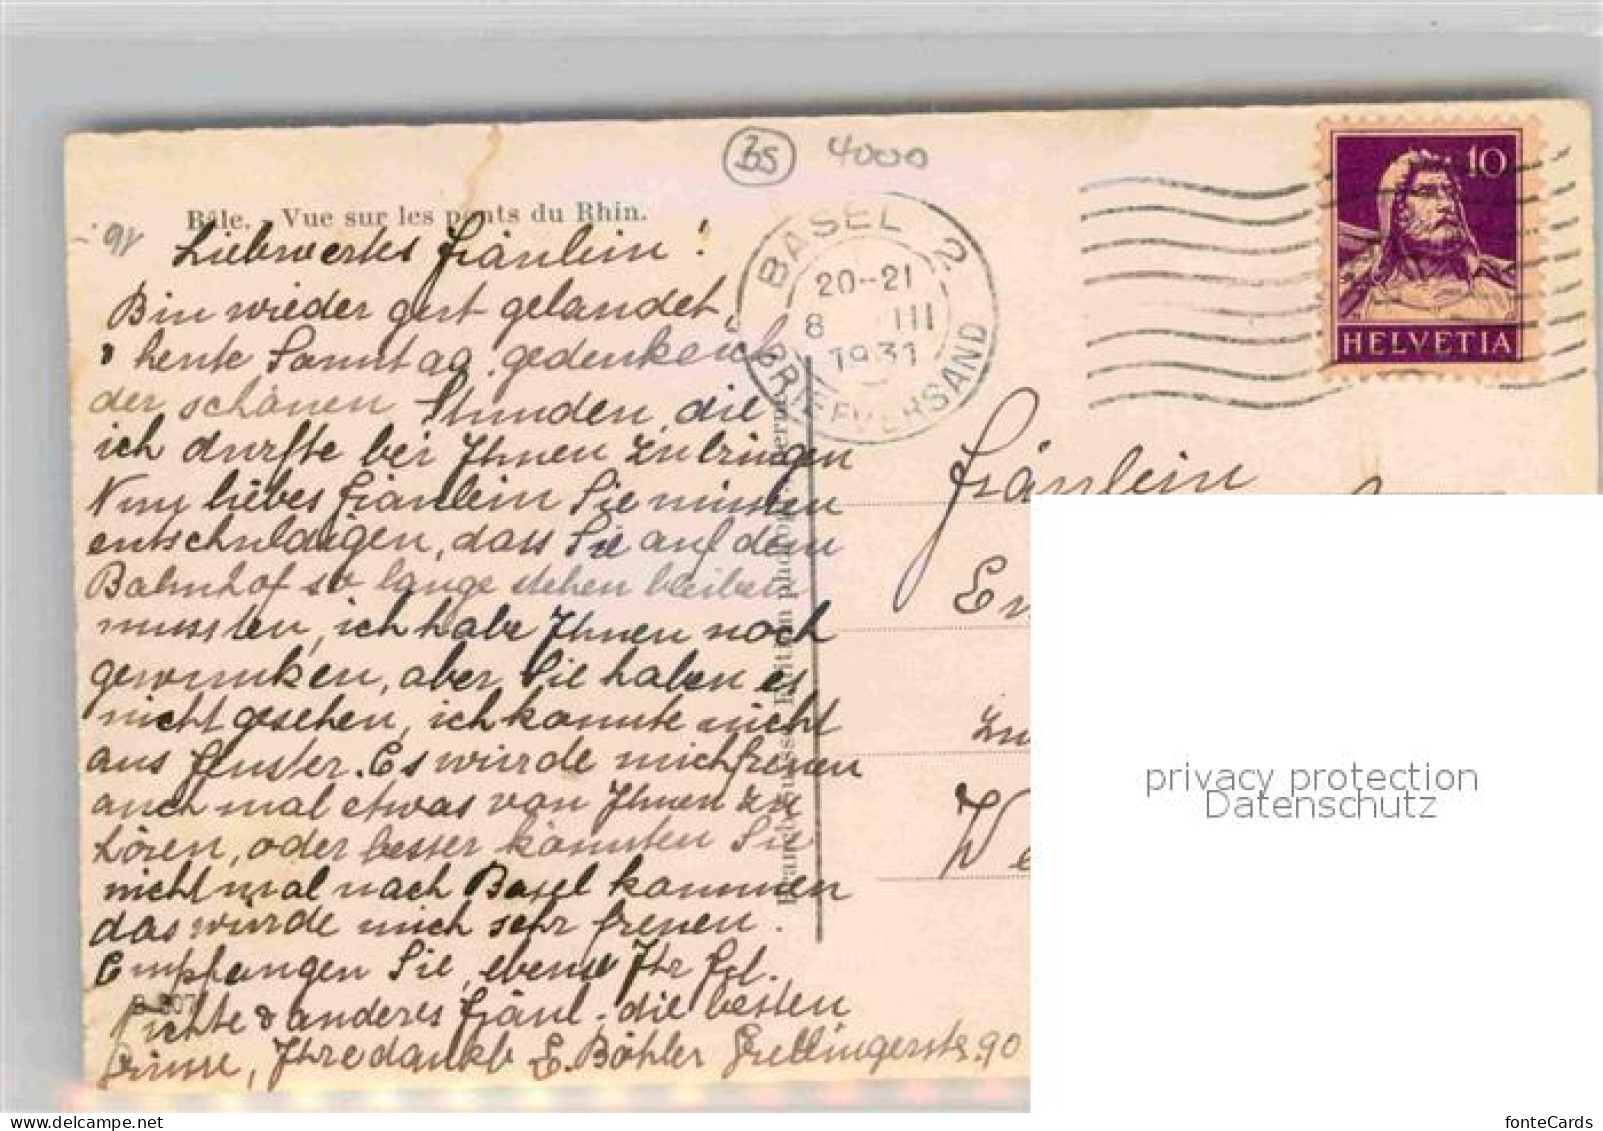 BS 4000
Bâle. Vue sur les ponts du Rhin.
91
BASEL 2
20-21
8 III
1931
BRIEFVERSAND
10
HELVETIA
Liebwertes Fräulein!
Bin wieder gut gelandet,
heute Sonntag gedenke ich
der schönen Stunden, die
ich durfte bei Ihnen zubringen
Nun liebes Fräulein Sie müssen
entschuldigen, dass Sie auf dem
Bahnhof so lange stehen bleiben
mussten, ich habe Ihnen noch
gewunken, aber Sie haben es
nicht gesehen, ich konnte nicht
ans Fenster. Es würde mich freuen
auch mal etwas von Ihnen zu
hören, oder besser könnten Sie
nicht mal nach Basel kommen
das würde mich sehr freuen.
Empfangen Sie, ebenso Ihr Frl.
Nichte & anderes Fräul. die besten
Grüsse, Ihre dankb E. Böhler Grellingerstr. 90
Fräulein
Zu
We
privacy protection
Datenschutz
www.delcampe.net
fonteCards